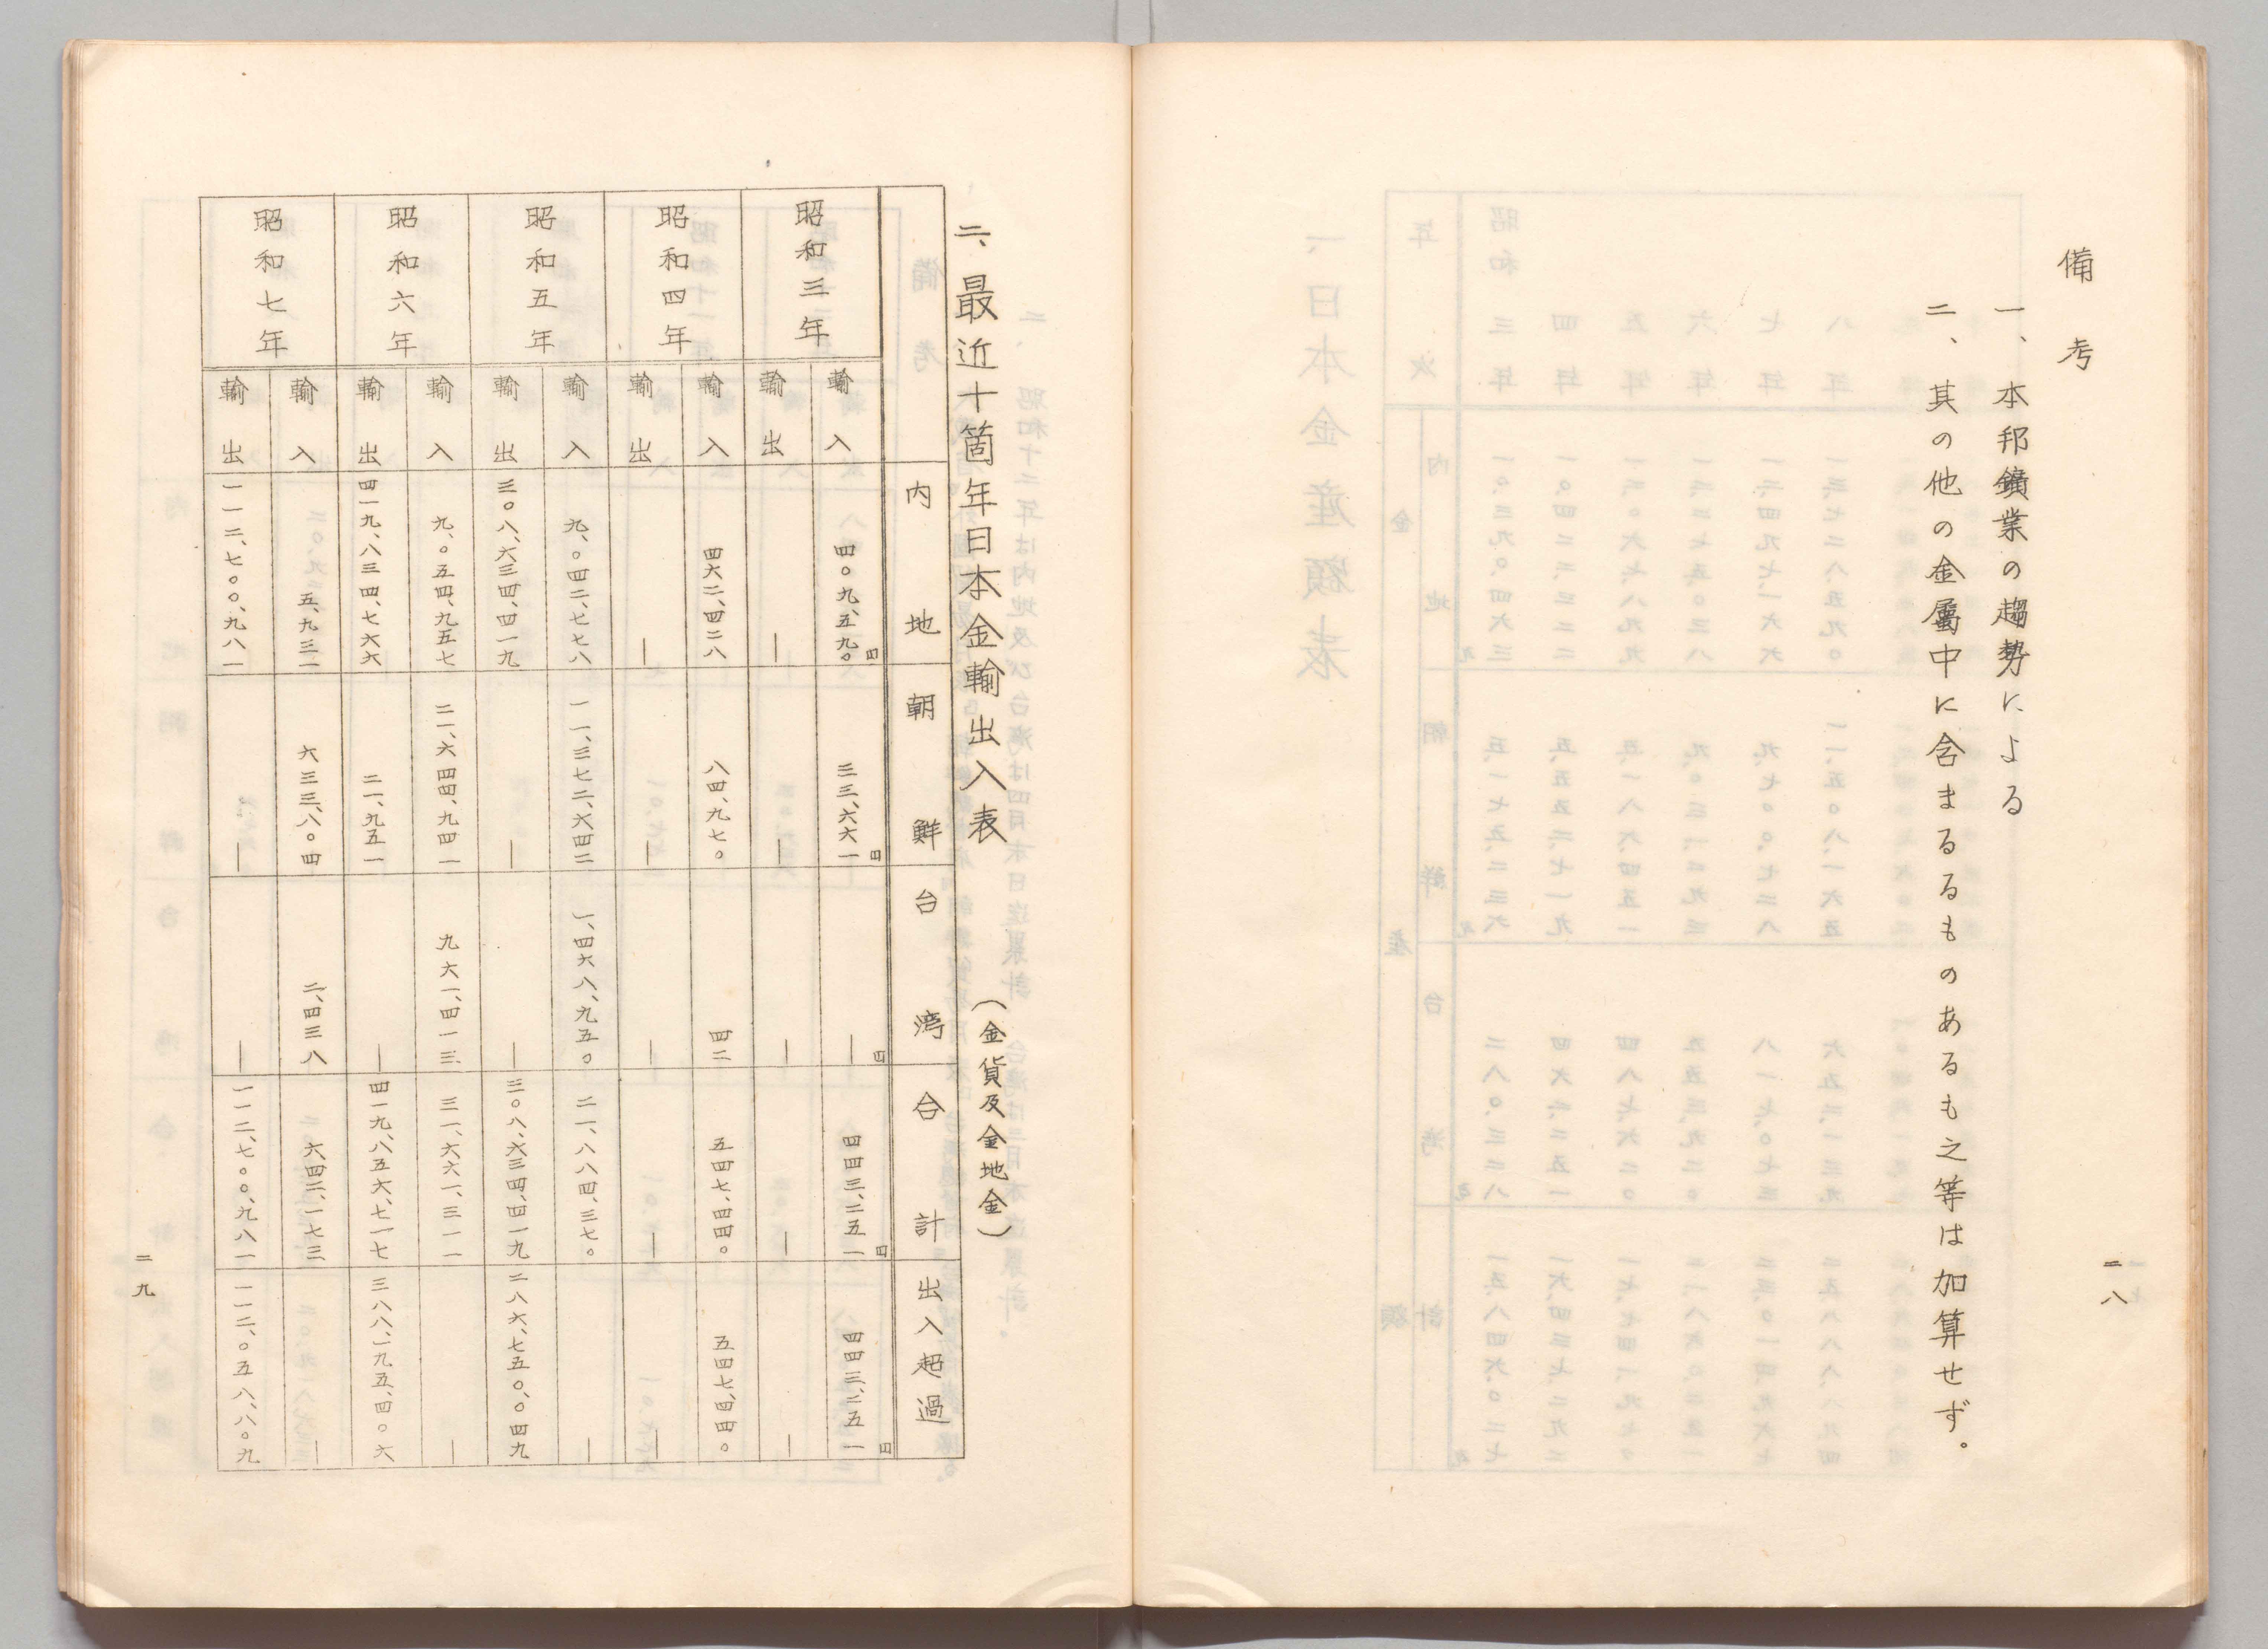 備考
一、本邦鑛業の趨勢による
二、其の他の金屬中に含まるるものあるも之等は加算せず。
二八
二、最近十箇年日本金輸出入表 (金貨及金地金)
内地 朝鮮 台湾 合計 出入超過
昭和三年
輸入 四〇九、五九〇円 三三、六六一円 —円 四四三、二五一円 四四三、二五一円
輸出 — — — — —
昭和四年
輸入 四六二、四二八 八四、九七〇 四二 五四七、四四〇 五四七、四四〇
輸出 — — — — —
昭和五年
輸入 九、〇四二、七七八 一一、三七二、六四二 一、四六八、九五〇 二一、八八四、三七〇 —
輸出 三〇八、六三四、四一九 — — 三〇八、六三四、四一九 二八六、七五〇、〇四九
昭和六年
輸入 九、〇五四、九五七 二一、六四四、九四一 九六一、四一三 三一、六六一、三一一 —
輸出 四一九、八三四、七六六 二一、九五一 — 四一九、八五六、七一七 三八八、一九五、四〇六
昭和七年
輸入 五、九三一 六三三、八〇四 二、四三八 六四二、一七三 —
輸出 一一二、七〇〇、九八一 — — 一一二、七〇〇、九八一 一一二、〇五八、八〇九
二九